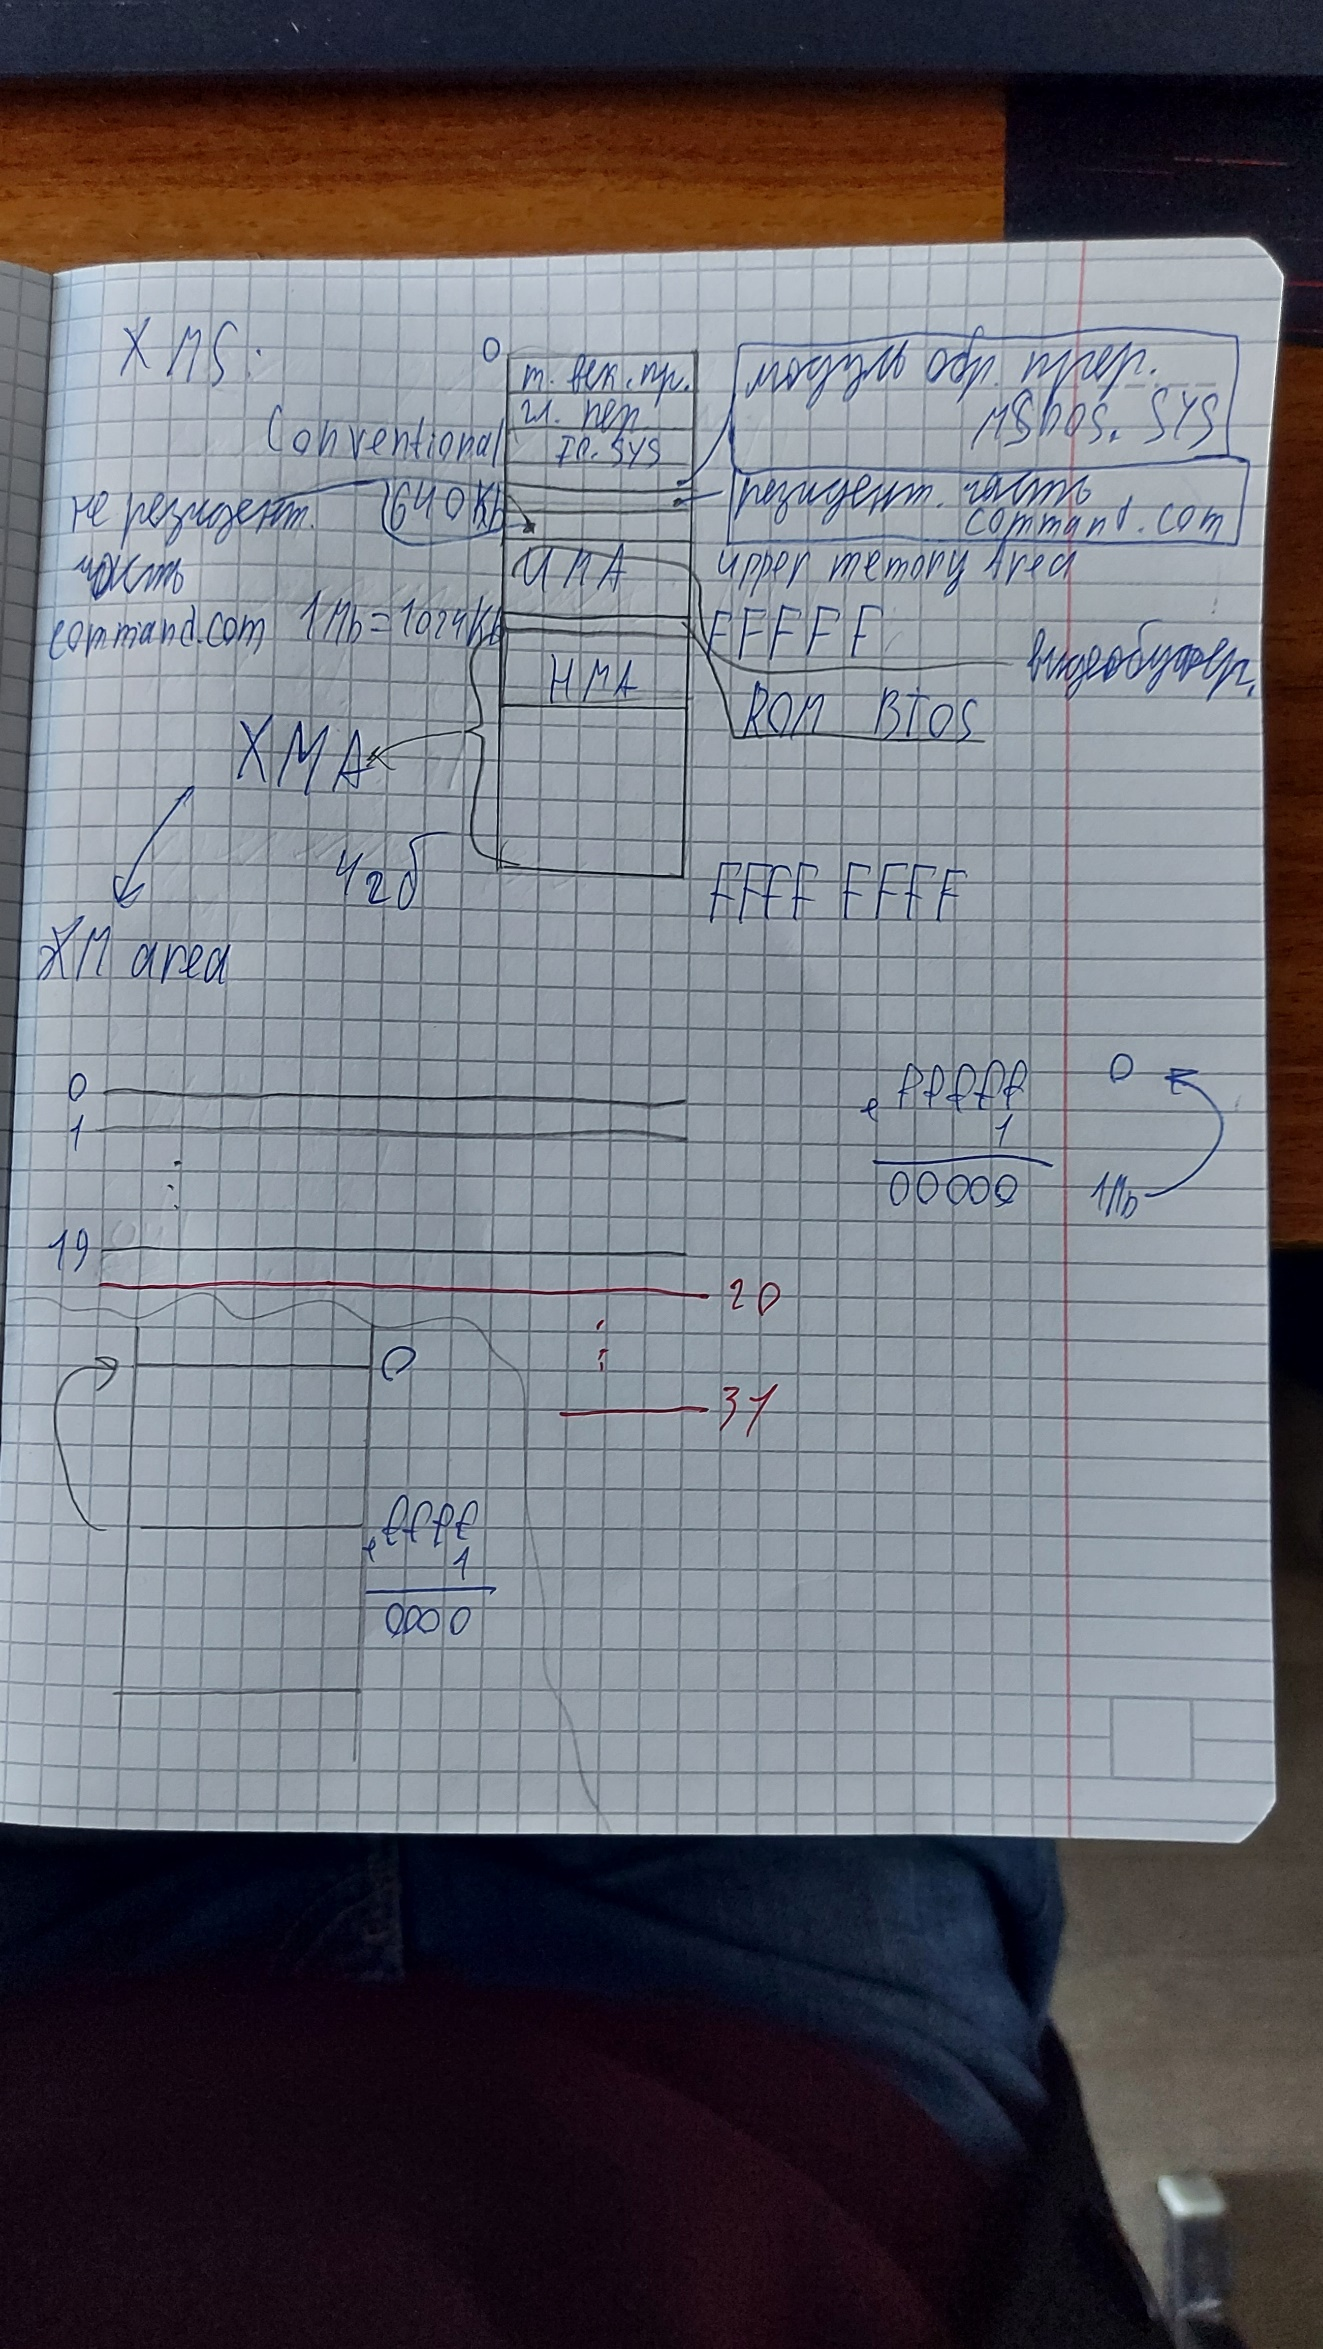 XMS:
0
т. век. пр.
гл. пер
IO.SYS
модуль обр. прер.
MSDOS.SYS
Conventional
640Kb
резидент. часть
command.com
не резидент.
часть
command.com
UMA
upper memory Area
1Mb=1024Kb
FFFFF
видеобуфер.
HMA
ROM BIOS
XMA
4гб
FFFF FFFF
XM area
0
1
19
fffff
1
00000
0
1Mb
20
31
0
ffff
1
0000